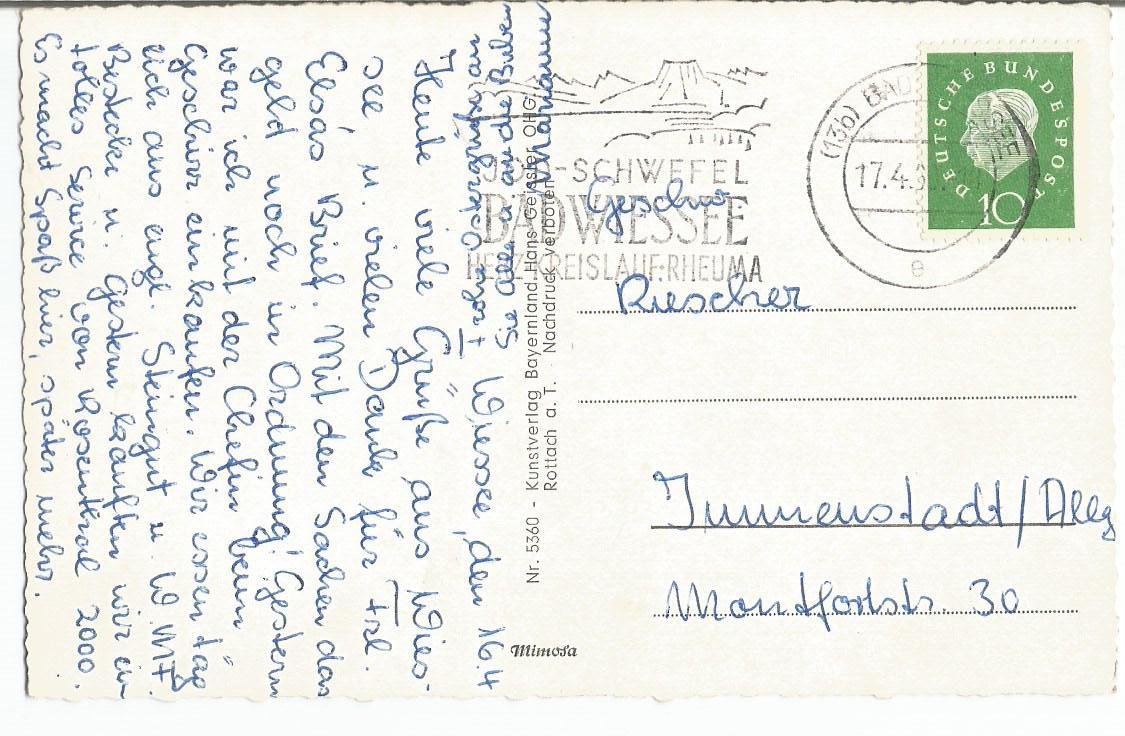 Wiessee, den 16.4
Heute viele Grüße aus Wies-
see u. vielen Dank für Frl.
Elsás Brief. Mit den Sachen das
geld noch in Ordnung! Gestern
war ich mit der Chefin beim
Geschirr einkaufen. Wir essen täg
lich aus engl. Steingut u. W.M.F.
Bestecke u. Gestern kauften wir ein
tolles Service von Rosenthal 2000.
Es macht Spaß hier, später mehr.
Sie alle u an die Buben
Marianne
JOD-SCHWEFEL
BAD WIESSEE
HERZ-KREISLAUF-RHEUMA
(13b) BAD WIESSEE
17.4.
e
DEUTSCHE BUNDESPOST
10
Geschw.
Riescher
Immenstadt/Allg
Montfortstr. 30
Nr. 5360 - Kunstverlag Bayernland Hans Geissler OHG,
Rottach a. T. Nachdruck verboten
Mimosa